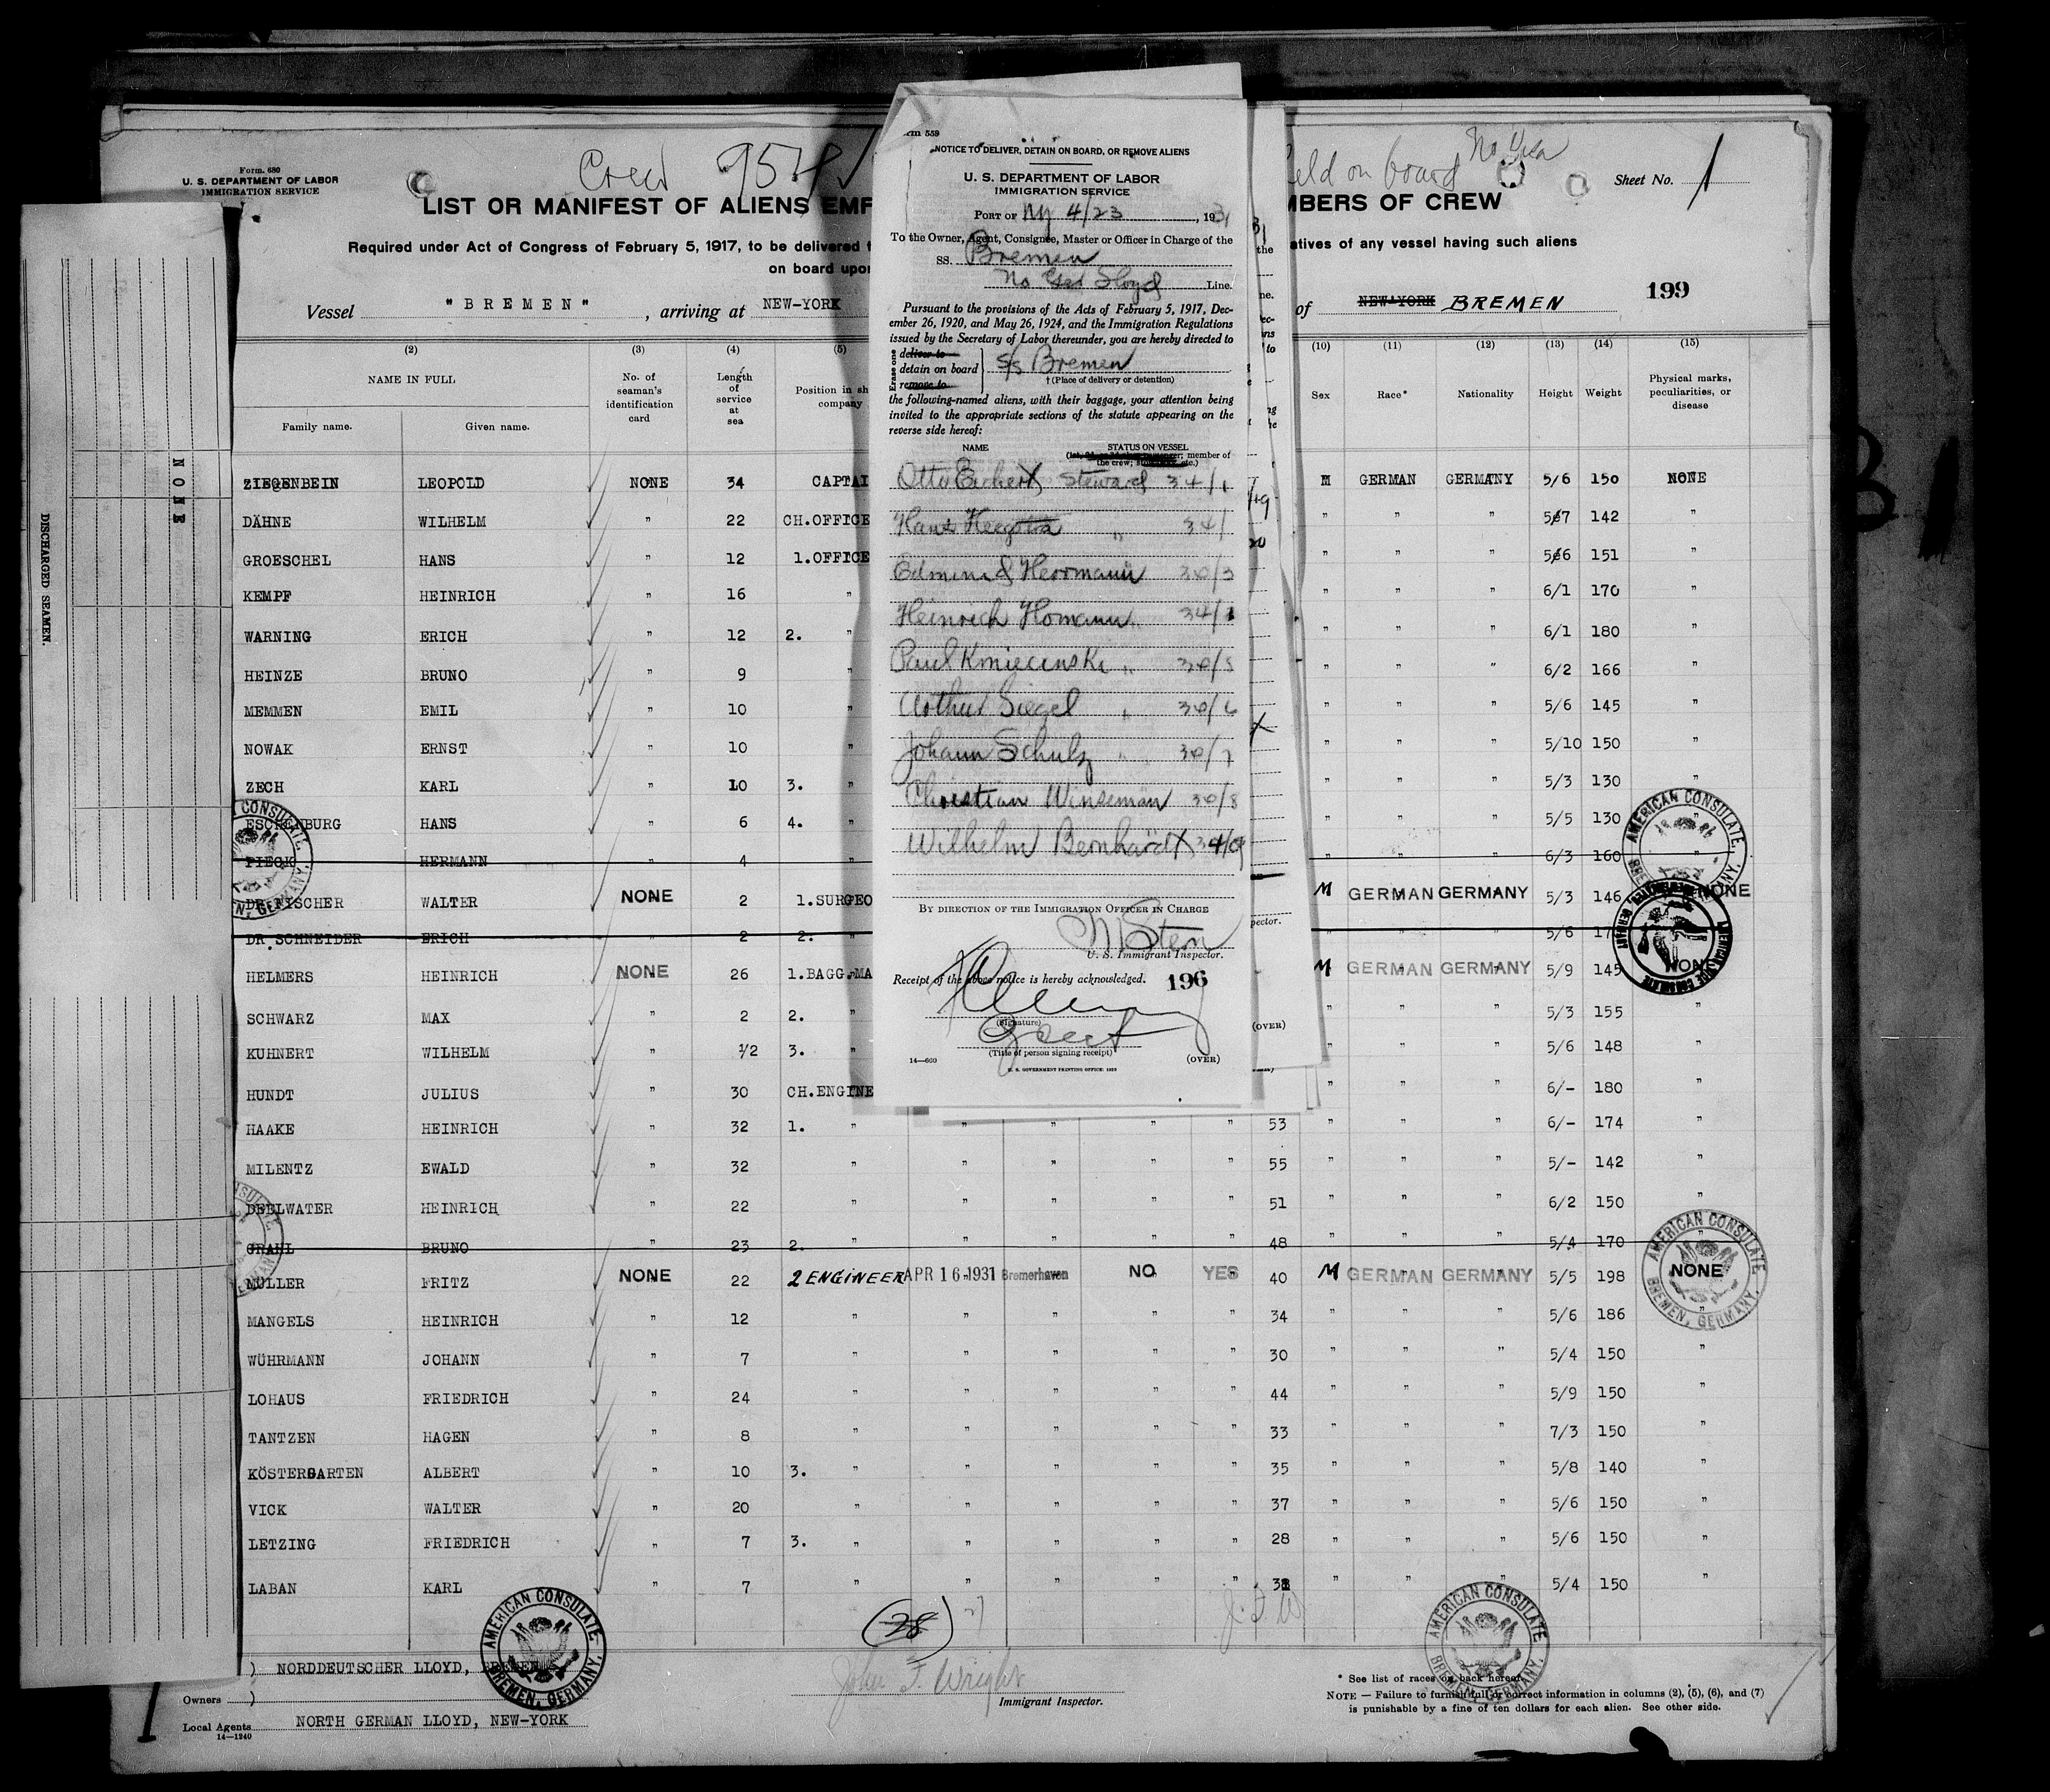 Crew 954
Held on board No Visa
Form. 680
U. S. DEPARTMENT OF LABOR
IMMIGRATION SERVICE
Sheet No. 1
LIST OR MANIFEST OF ALIENS EMP
MBERS OF CREW
Required under Act of Congress of February 5, 1917, to be delivered t
atives of any vessel having such aliens
on board upon
Vessel "BREMEN", arriving at NEW-YORK
of NEW-YORK BREMEN 199
(2) (3) (4) (5) (10) (11) (12) (13) (14) (15)
NAME IN FULL
Family name. Given name.
No. of seaman's identification card
Length of service at sea
Position in sh company
Sex Race* Nationality Height Weight
Physical marks, peculiarities, or disease
ZIEGENBEIN LEOPOLD NONE 34 CAPTAI M GERMAN GERMANY 5/6 150 NONE
DÄHNE WILHELM " 22 CH.OFFICE " " " 5/7 142 "
GROESCHEL HANS " 12 1.OFFICE " " " 5/6 151 "
KEMPF HEINRICH " 16 " " " " 6/1 170 "
WARNING ERICH " 12 2. " " " " 6/1 180 "
HEINZE BRUNO " 9 " " " " 6/2 166 "
MEMMEN EMIL " 10 " " " " 5/6 145 "
NOWAK ERNST " 10 " " " " 5/10 150 "
ZECH KARL " 10 3. " " " " 5/3 130 "
ESCHENBURG HANS " 6 4. " " " " 5/5 130 "
PIECK HERMANN " 4 " " " " 6/3 160 "
DR.FISCHER WALTER NONE 2 1.SURGEO M GERMAN GERMANY 5/3 146 NONE
DR.SCHNEIDER ERICH " 2 2. " " " " 5/6
HELMERS HEINRICH NONE 26 1.BAGG.MA M GERMAN GERMANY 5/9 145 NONE
SCHWARZ MAX " 2 2. " " " " 5/3 155 "
KUHNERT WILHELM " 1/2 3. " " " " 5/6 148 "
HUNDT JULIUS " 30 CH.ENGINE " " " 6/- 180 "
HAAKE HEINRICH " 32 1. " " " " " 53 " " " 6/- 174 "
MILENTZ EWALD " 32 " " " " " 55 " " " 5/- 142 "
DEELWATER HEINRICH " 22 " " " " " 51 " " " 6/2 150 "
GRAHL BRUNO " 23 2. " " " " " 48 " " " 5/4 170 "
MÜLLER FRITZ NONE 22 2 ENGINEER APR 16 1931 Bremerhaven NO YES 40 M GERMAN GERMANY 5/5 198 NONE
MANGELS HEINRICH " 12 " " " " " 34 " " " 5/6 186 "
WÜHRMANN JOHANN " 7 " " " " " 30 " " " 5/4 150 "
LOHAUS FRIEDRICH " 24 " " " " " 44 " " " 5/9 150 "
TANTZEN HAGEN " 8 " " " " " 33 " " " 7/3 150 "
KÖSTERGARTEN ALBERT " 10 3. " " " " " 35 " " " 5/8 140 "
VICK WALTER " 20 " " " " " 37 " " " 5/6 150 "
LETZING FRIEDRICH " 7 3. " " " " " 28 " " " 5/6 150 "
LABAN KARL " 7 " " " " " " " " 5/4 150 "
(28)
J. F. W
NORDDEUTSCHER LLOYD, BREMEN
Owners
Local Agents NORTH GERMAN LLOYD, NEW-YORK
14—1240
John F. Wright
Immigrant Inspector.
* See list of races on back hereof.
NOTE — Failure to furnish full or correct information in columns (2), (5), (6), and (7)
is punishable by a fine of ten dollars for each alien. See other side.
AMERICAN CONSULATE, BREMEN, GERMANY.
AMERICAN CONSULATE, BREMEN, GERMANY.
AMERICAN CONSULATE, BREMEN, GERMANY.
AMERICAN CONSULATE, BREMEN, GERMANY.
NONE
DISCHARGED SEAMEN.
rm 559
NOTICE TO DELIVER, DETAIN ON BOARD, OR REMOVE ALIENS
U. S. DEPARTMENT OF LABOR
IMMIGRATION SERVICE
PORT OF NY 4/23, 1931
To the Owner, Agent, Consignee, Master or Officer in Charge of the
SS. Bremen
No Ger Lloyd Line.
Pursuant to the provisions of the Acts of February 5, 1917, Dec-
ember 26, 1920, and May 26, 1924, and the Immigration Regulations
issued by the Secretary of Labor thereunder, you are hereby directed to
Erase one
deliver to
detain on board
remove to
S/S Bremen
† (Place of delivery or detention)
the following-named aliens, with their baggage, your attention being
invited to the appropriate sections of the statute appearing on the
reverse side hereof:
NAME STATUS ON VESSEL
member of
the crew; etc.)
Otto Eichert X Steward 34/1
Hans " 34/
Edmund Herrmann 30/3
Heinrich Homann " 34/
Paul Kniecinski " 30/5
Arthur Siegel " 30/6
Johann Schulz " 30/7
Christian Winseman 30/8
Wilhelm Bernhardt X 34/9
BY DIRECTION OF THE IMMIGRATION OFFICER IN CHARGE
M Stern
U. S. Immigrant Inspector.
Receipt of the above notice is hereby acknowledged. 196
(Signature)
(Title of person signing receipt)
14—600 (OVER)
U. S. GOVERNMENT PRINTING OFFICE: 1929
(OVER)